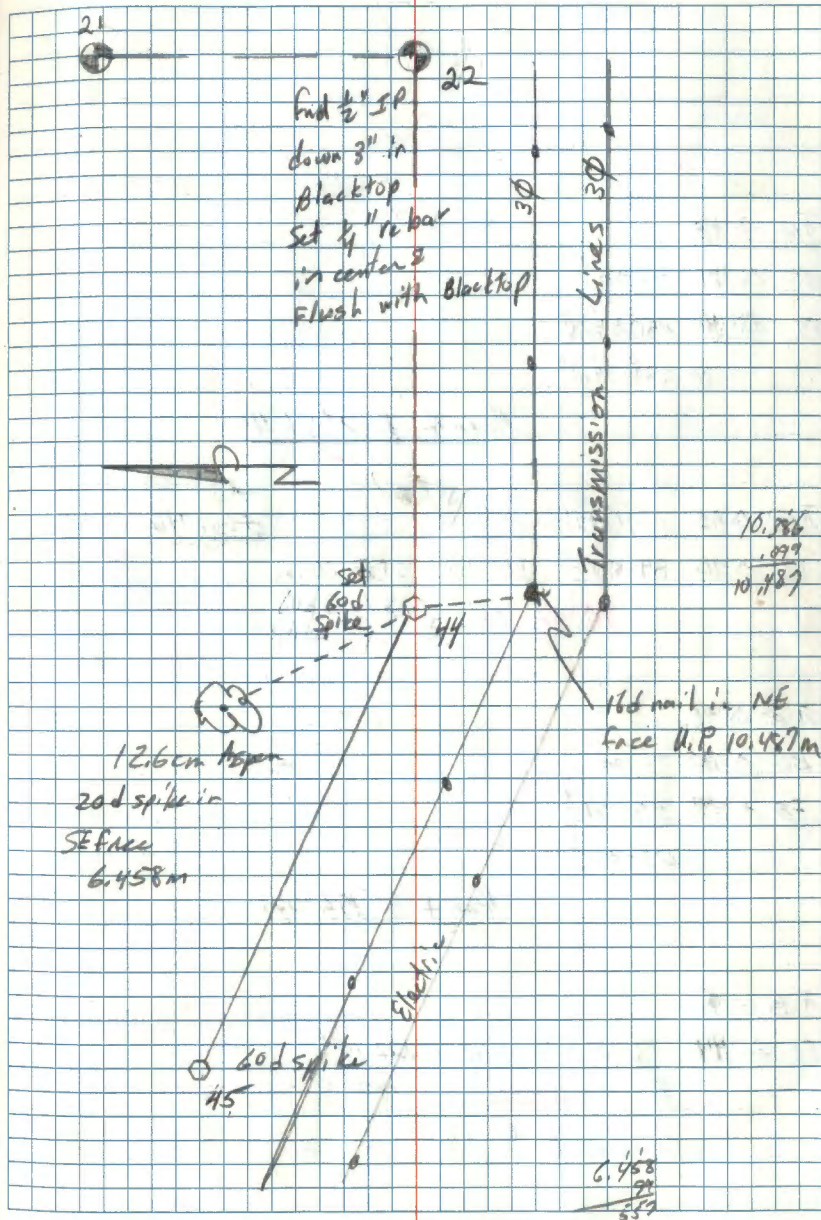 21
22
Fnd ½" IP
down 3" in
Blacktop
Set ¼" rebar
in center &
Flush with Blacktop
3Ø
Transmission Lines 3Ø
N
10.386
.099
10.487
Set
60d
Spike
44
16d nail in NE
face U.P. 10.487m
12.6cm Aspen
20d spike in
SE face
6.458m
Electric
60d spike
45
6.458
99
557